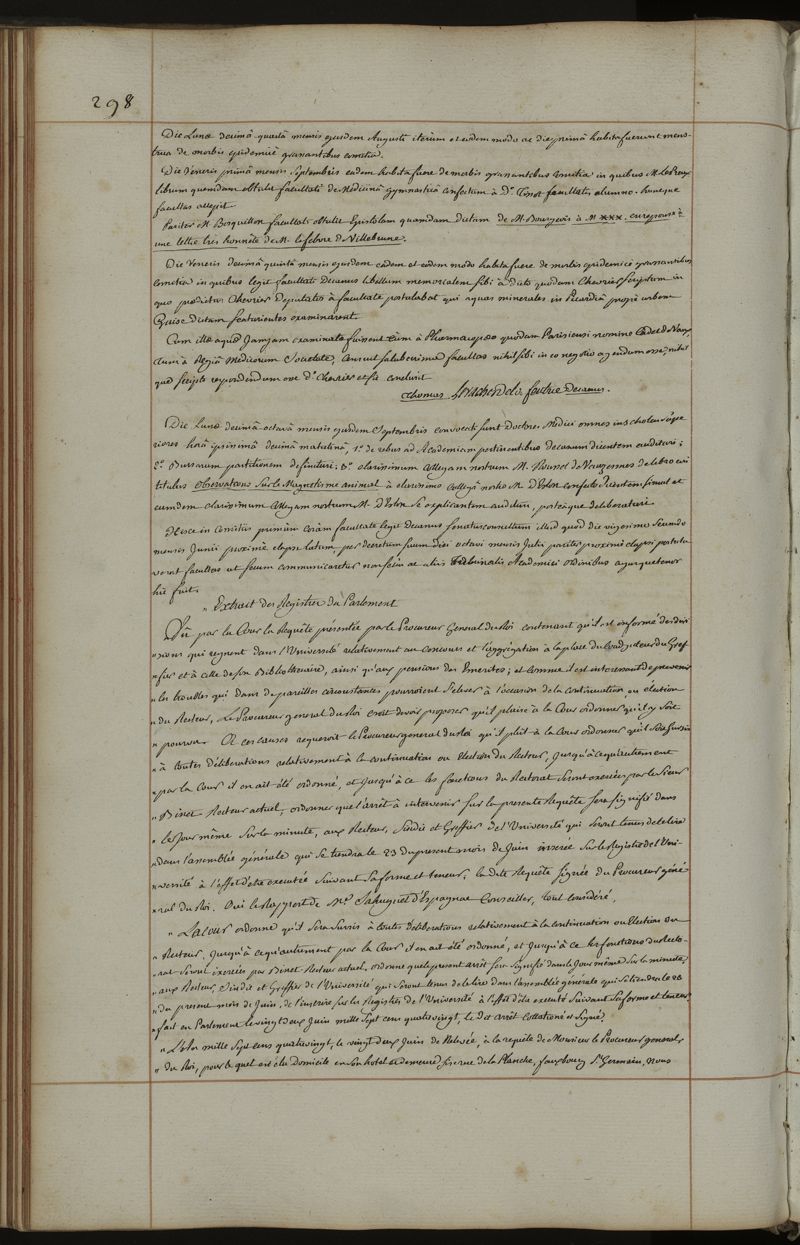 298
Die Lunæ decimâ-quartâ mensis ejusdem Augusti iterùm et eodem modo ac die primâ habita fuerunt mens-
trua de morbis epidemicè grassantibus comitia.
Die Veneris primâ mensis Septembris eadem habita fuere de morbis grassantibus comitia in quibus M. Le Preux
librum quemdam obtulit facultati de Medicinâ gymnasticâ confectum à D° Tissot facultatis alumno. hunc que
facultas accepit
Pariter M. Bosquillon facultati obtulit Epistolam quamdam dictam de M. Bourgeois à M. xxx. en réponse à
une lettre très honnête de M. Lefebvre D Villebrune.
Die Veneris decimâ quintâ mensis ejusdem eadem et eodem modo habita fuere de morbis epidemicè grassantibus
comitia in quibus legit facultati Decanus libellum memorialem sibi à dicto quodam Chevrier scriptum in
quo prædictus Chevrier Deputatos à facultate postulabat qui aquas minerales in Picardiâ propè urbem
Guise dictam scaturientes examinarent
Cum illæ aquæ Jamjam examinatæ fuissent tùm à Pharmacopæo quodam Parisiensi nomine Cadet de Vaux
tum à Regiâ Medicorum Societate, censuit saluberrima facultas nihil sibi in eo negotio agendum esse, nihil
que scripto respondendum esse D° Chevrier et sic conclusit
Thomas Le Vacher De la feutrie Decanus.
Die Lunæ decimâ octavâ mensis ejusdem Septembris convocati sunt Doctores Medici omnes in scholas supe
riores horâ ipsissimâ decimâ matutinâ, 1° de rebus ad Academiam pertinentibus decanum dicentem audituri;
2° Bursarum partitionem definituri; 3° clarissimum collegam nostrum M. Roussel de Vauzesmes de libro cui
titulus Observations sur le Magnétisme animal à clarissimo collegâ nostro M. D'Eslon confecto dicentem simul et
eumdem clarissimum collegam nostrum M. D'Eslon se explicantem audituri, posteàque deliberaturi.
Hisce in Comitiis primùm coràm facultate legit Decanus senatus consultum illud quod die vigesimâ secundâ
mensis Junii proximè elapsi latum, per decretum suum diei octavi mensis Julii pariter proximè elapsi postula
verat facultas ut secum communicaretur non secùs ac aliis Tribunalis Academici ordinibus cujusque tenor
hic fuit.
" Extrait des Registres du Parlement
Vu par la Cour la Requête présentée par le Procureur General du Roi contenant qu'il est informé des divi
"sions qui regnent dans l'Université relativement au Concours et l'aggrégation à la place du Coadjuteur du Gref
"fier et à celle de son Bibliothécaire, ainsi qu'aux pensions des Emerites; et comme il est interessant de prevenir
"les troubles qui dans de pareilles circonstances pourroient s'elever à l'occasion de la continuation ou élection
"du Recteur, Le Procureur general du Roi croit devoir proposer qu'il plaise à la Cour ordonner qu'il y soit
"pourvu. A ces causes requeroit le Procureur general du Roi qu'il plût à la Cour ordonner qu'il sera sursis
"à toutes déliberations relativement à la continuation ou Election du Recteur, Jusqu'à ce qu'autrement
"par la Cour il en ait été ordonné, et jusqu'à ce les fonctions du Rectorat seront exercées par le Sieur
"Binet Recteur actuel, ordonner que l'arrêt à intervenir sur la presente Requête sera signifié dans
"le jour même sur la minute, aux Recteur, Sindic et Greffier de l'Université qui seront tenus de le lire
"dans l'assemblée générale qui se tiendra le 23 du present mois de Juin inserée sur le Registre de l'Uni-
"versité à l'effet d'être executée suivant sa forme et teneur; la dite Requête signée du Procureur géné-
"ral du Roi. Oui le Rapport de Me. Sahuguet d'Espagnac Conseiller, tout considéré,
" La Cour ordonne qu'il sera sursis à toutes déliberations relativement à la continuation ou Election du
"Recteur, Jusqu'à ce qu'autrement par la Cour il en ait été ordonné, et jusqu'à ce les fonctions du Recto-
"rat seront exercées par Binet Recteur actuel, ordonne que le present arrêt sera signifié dans le Jour même sur la minute,
"aux Recteur, Sindic et Greffier de l'Université qui seront tenus de le lire dans l'assemblée générale qui se tiendra le 23
"du present mois de Juin, de l'inscrire sur les Registres de l'Université à l'effet d'être executé suivant sa forme et teneur,
"fait en Parlement le vingt deux Juin mille sept cent quatrevingt, Le dit arrêt Collationé et Signé,
" L'an mille sept cens quatrevingt, le vingt deux Juin de Relevée, à la requête de Monsieur le Procureur general
"du Roi, pour le quel est élu Domicile en son hotel et demeure sise rue de la Planche, fauxbourg St. Germain, nous